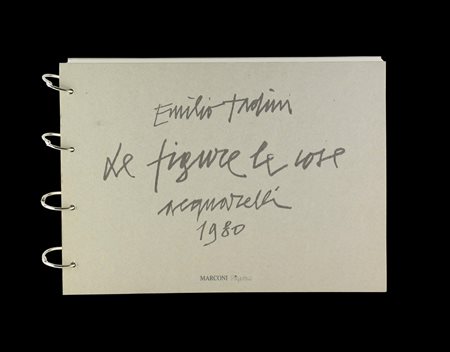 Emilio Tadini
Le figure le cose
acquarelli
1980
MARCONI